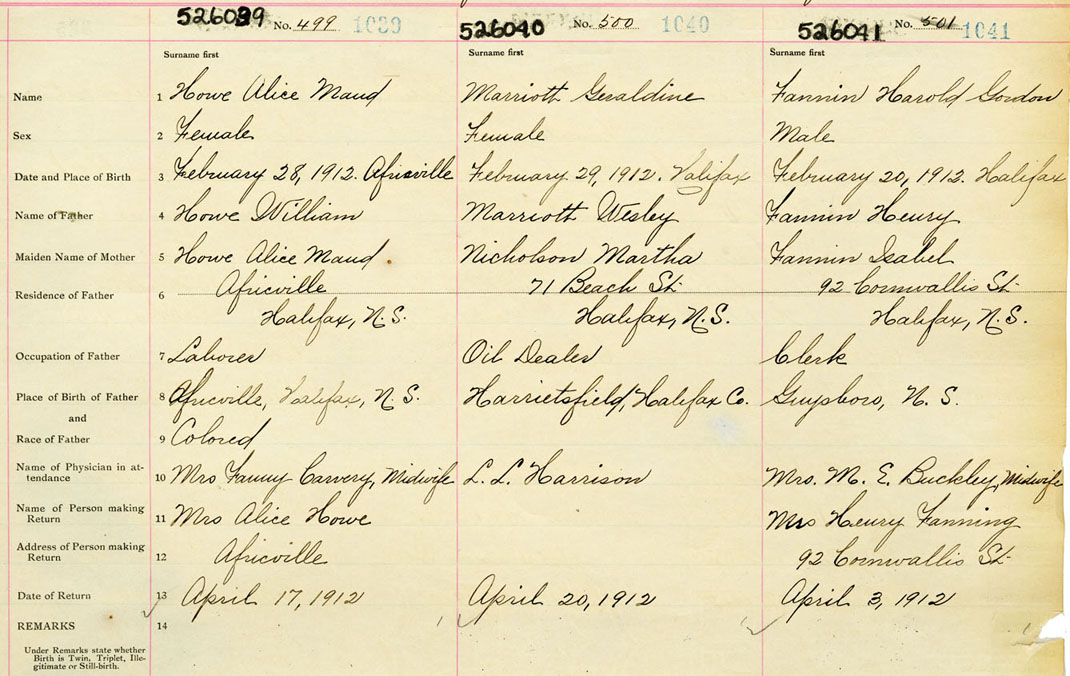 526039 No. 499 1039 526040 No. 500 1040 526041 No. 501 1041
Surname first Surname first Surname first
Name 1 Howe Alice Maud Marriott Geraldine Fannin Harold Gordon
Sex 2 Female Female Male
Date and Place of Birth 3 February 28, 1912. Africville February 29, 1912. Halifax February 20, 1912. Halifax
Name of Father 4 Howe William Marriott Wesley Fannin Henry
Maiden Name of Mother 5 Howe Alice Maud Nicholson Martha Fannin Isabel
Residence of Father 6 Africville 71 Beach St. 92 Cornwallis St.
Halifax, N.S. Halifax, N.S. Halifax, N.S.
Occupation of Father 7 Laborer Oil Dealer Clerk
Place of Birth of Father 8 Africville, Halifax, N.S. Harrietsfield, Halifax Co. Guysboro, N.S.
and
Race of Father 9 Colored
Name of Physician in at-
tendance 10 Mrs Fanny Carvery, Midwife L. L. Harrison Mrs. M. E. Buckley, Midwife
Name of Person making
Return 11 Mrs Alice Howe Mrs Henry Fanning
Address of Person making
Return 12 Africville 92 Cornwallis St.
Date of Return 13 April 17, 1912 April 20, 1912 April 3, 1912
REMARKS 14
Under Remarks state whether
Birth is Twin, Triplet, Ille-
gitimate or Still-birth.